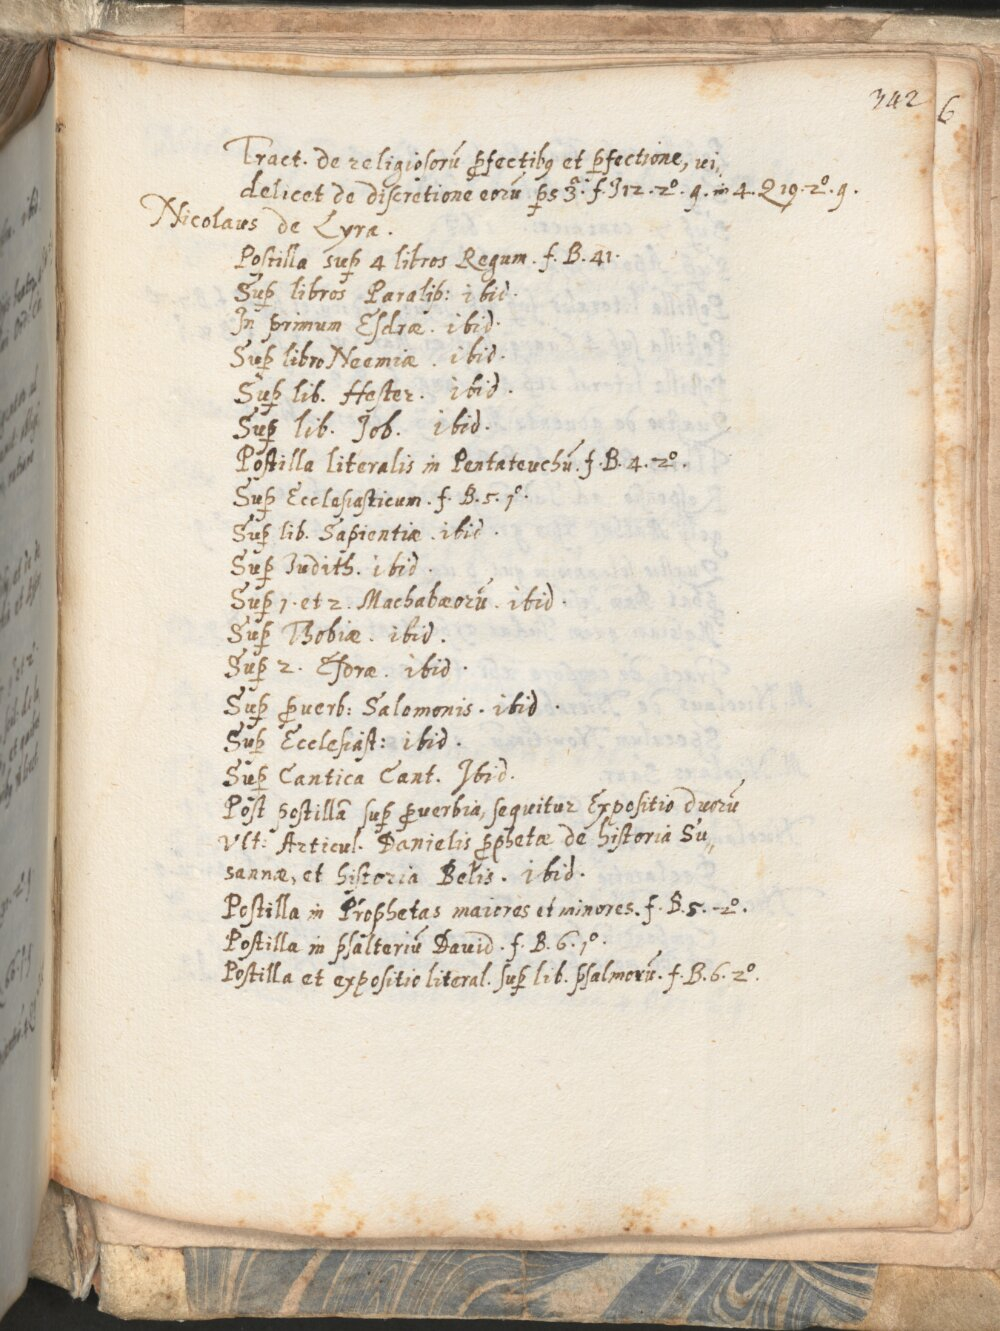 342 6
Tract. de religiosorū ꝓfectibꝰ et ꝑfectione, vi„
delicet de discretione eorū ꝑs 3ª. f J12. 2º. 9. in 4. Q 19. 2º. 9.
Nicolaus de Lyra.
Postilla suꝑ 4 libros Regum. f. B. 41.
Suꝑ libros Paralip: ibid.
In prmum Esdræ. ibid.
Suꝑ libro Neemiæ. ibid.
Suꝑ lib. Hester. ibid.
Suꝑ lib. Job. ibid.
Postilla literalis in Pentateuchū. f. B. 4. 2º.
Suꝑ Ecclesiasticum. f. B. 5. 1º.
Suꝑ lib. Sapientiæ. ibid.
Suꝑ Judith. ibid.
Suꝑ 1. et 2. Machabæorū. ibid.
Suꝑ Thobiæ. ibid.
Suꝑ 2. Esdræ. ibid.
Suꝑ ꝓuerb: Salomonis. ibid.
Suꝑ Ecclesiast: ibid.
Suꝑ Cantica Cant. Ibid.
Post postillā suꝑ ꝓuerbia, sequitur Expositio duorū
Vlt: Articul. Danielis ꝓphetæ de historia Su„
sannæ, et historia Belis. ibid.
Postilla in Prophetas maiores et minores. f. B. 5. 2º.
Postilla in psalteriū Dauid. f. B. 6. 1º.
Postilla et expositio literal. suꝑ lib. psalmorū. f. B. 6. 2º.